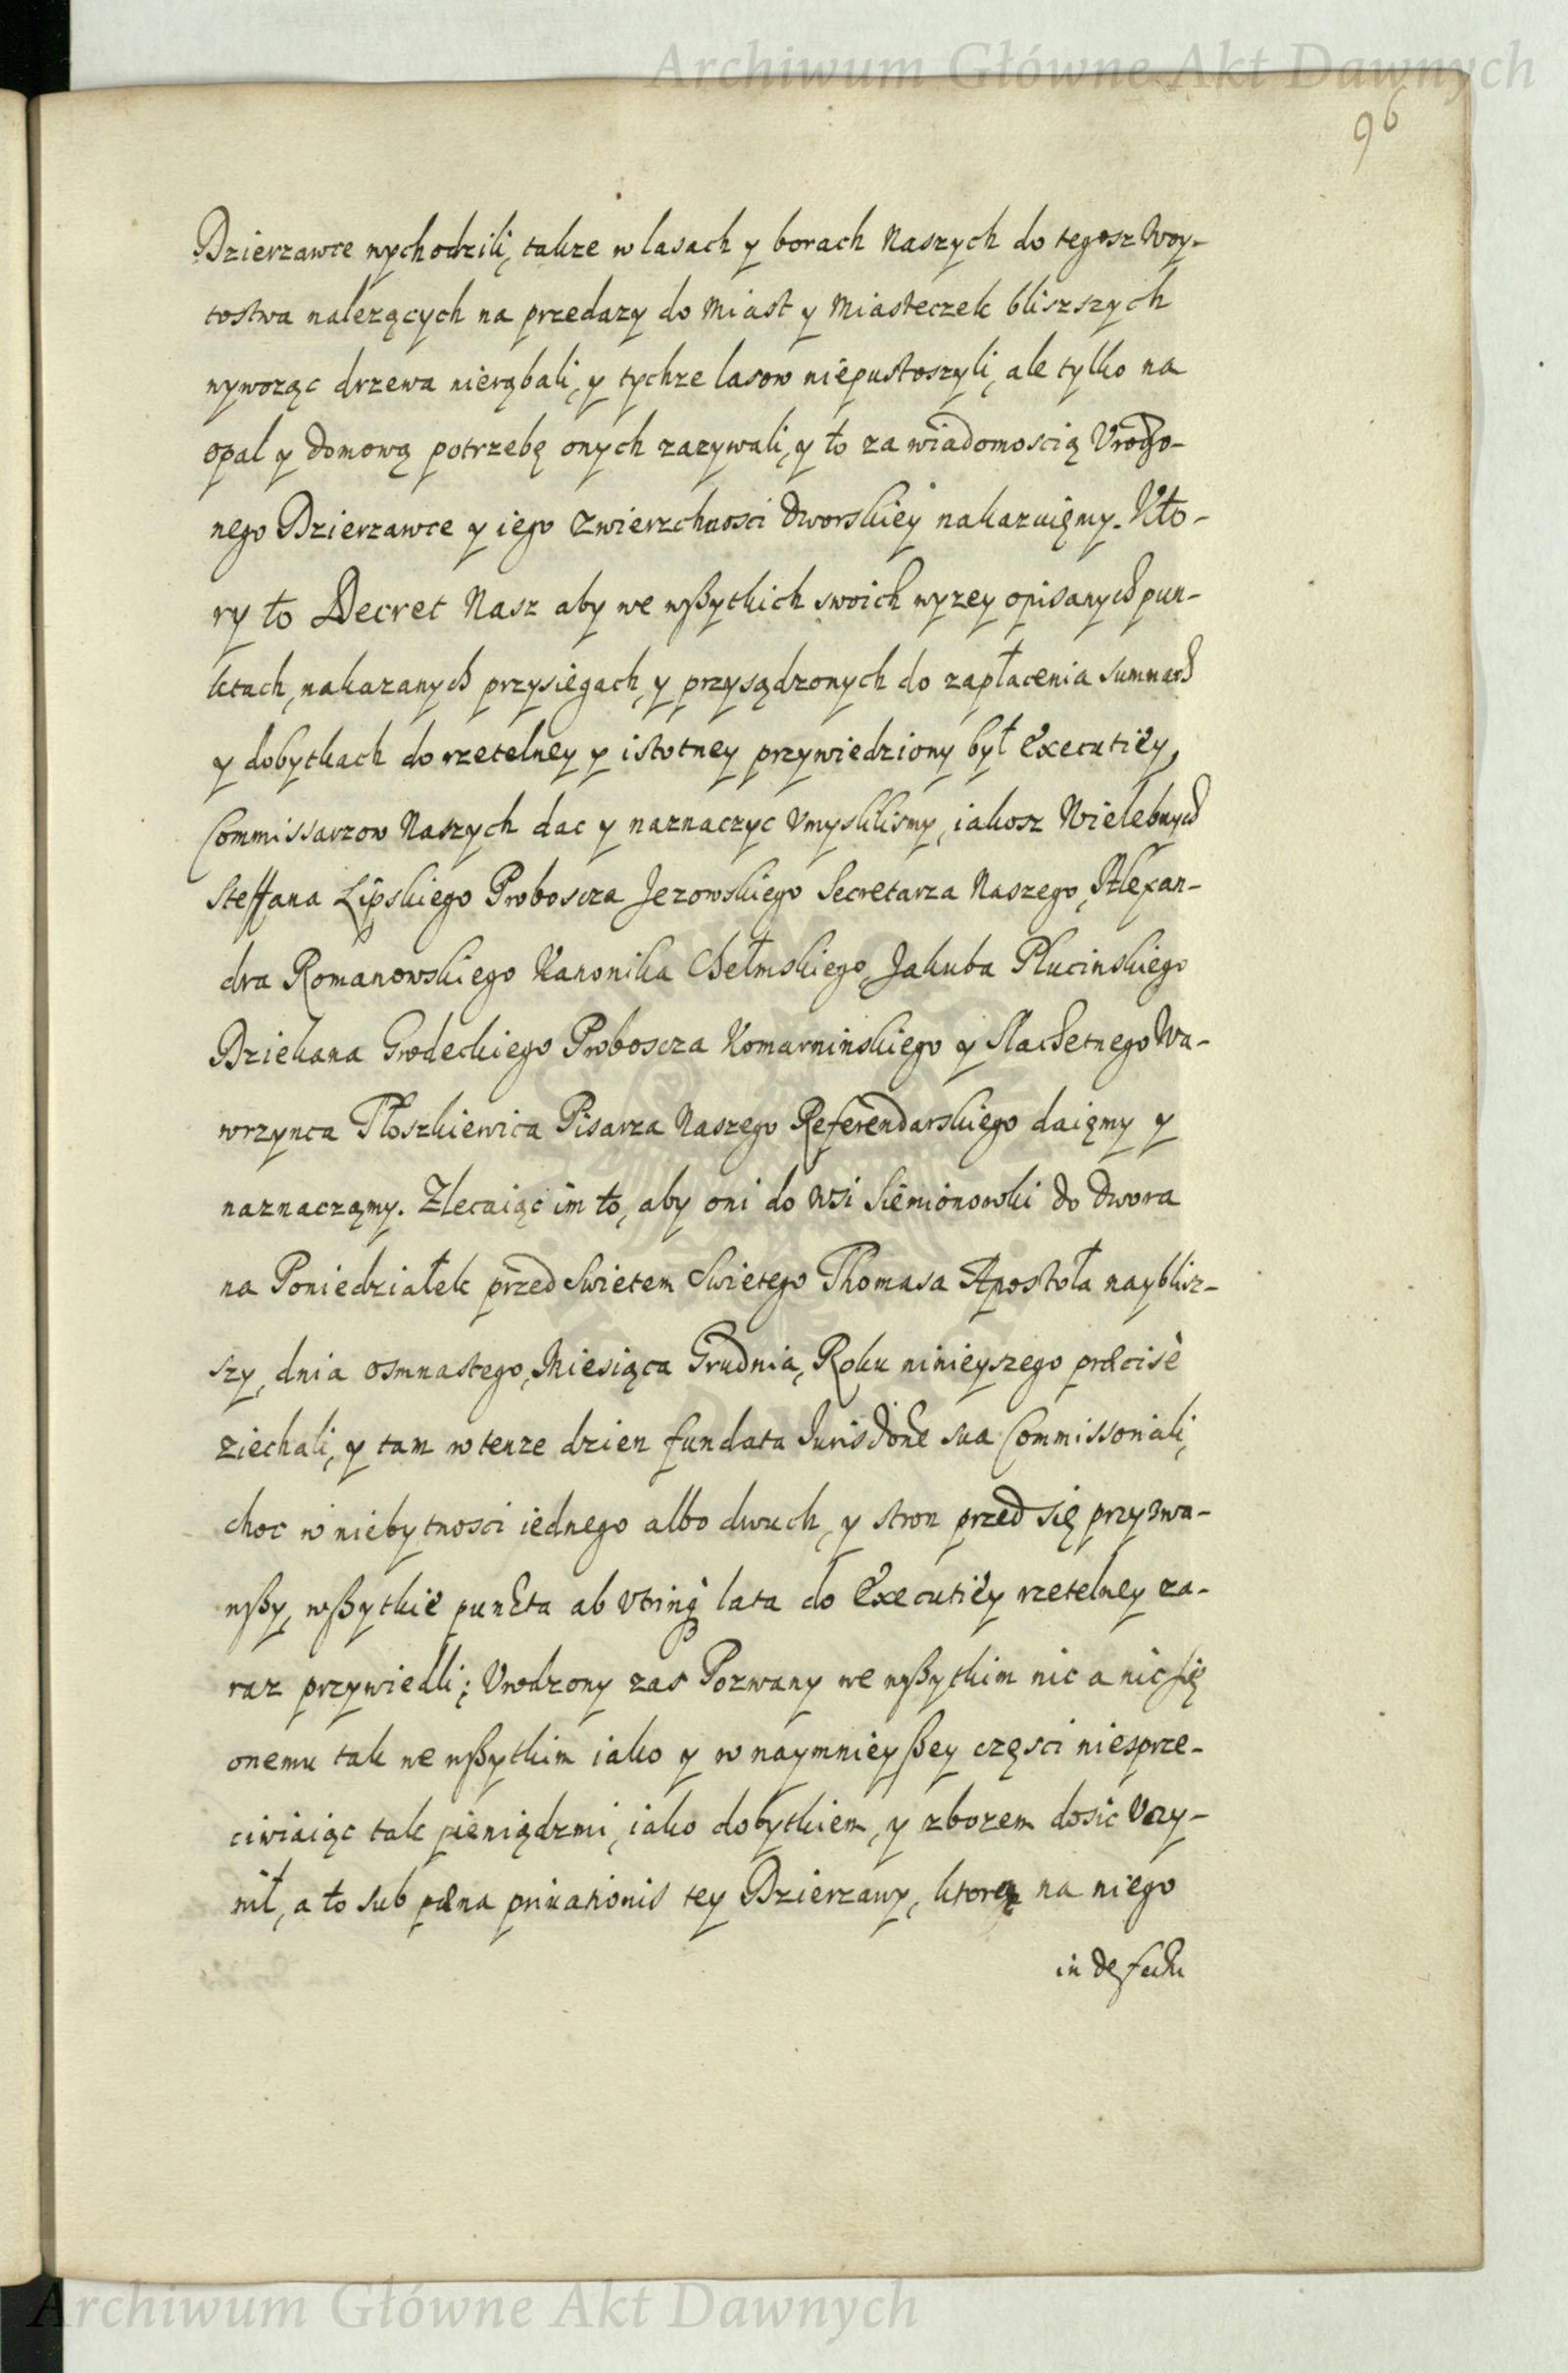 Archiwum Główne Akt Dawnych
96
Dzierzawce wychodzili, takze w lasach y borach Naszych do tegosz Woy-
tostwa nalezących na przedazy do Miast y Miasteczek bliszszych
wywoząc drzewa nierąbali, y tychze lasow niepustoszyli, ale tylko na
opal y domową potrzebę onych zazywali, y to za wiadomoscią Urodzo-
nego Dzierzawce y iego zwierzchnosci dworskiey nakazuięmy. Kto-
ry to Decret Nasz aby we wßytkich swoich wyzey opisanych pun-
ktach, nakazanych przysiegach, y przysądzonych do zapłacenia summach
y dobytkach do rzetelney y istotney przywiedziony był Executiey,
Commissarzow Naszych dac y naznaczyc Umyslilismy, iakosz Wielebnych
Steffana Lipskiego Proboscza Jezowskiego Secretarza Naszego, Alexan-
dra Romanowskiego Kanonika Chełmskiego, Jakuba Plucinskiego
Dziekana Grodeckiego Proboscza Komarninskiego y Slachetnego Wa-
wrzynca Płoszkiewica Pisarza Naszego Referendarskiego daięmy y
naznaczamy. Zlecaiąc im to, aby oni do Wsi Siemionowki do dwora
na Poniedziałek przed Swietem Swietego Thomasa Apostoła nayblisz-
szy, dnia osmnastego, Miesiąca Grudnia, Roku ninieyszego præcisè
ziechali, y tam w tenze dzien fundata Jurisdōne sua Commissoriali,
choc w niebytnosci iednego albo dwuch, y stron przed się przyzwa-
wßy, wßytkie puncta ab utrinq lata do Executiey rzetelney za-
raz przywiedli; Urodzony zas Pozwany we wßytkim nic a nic się
onemu tak we wßytkim iako y w naymnieyßey częsci niesprze-
ciwiaiąc tak pieniądzmi, iako dobytkiem, y zbozem dosic Uczy-
nił, a to sub pœna privationis tey Dzierzawy, ktorą na niego
in defectu
Archiwum Główne Akt Dawnych